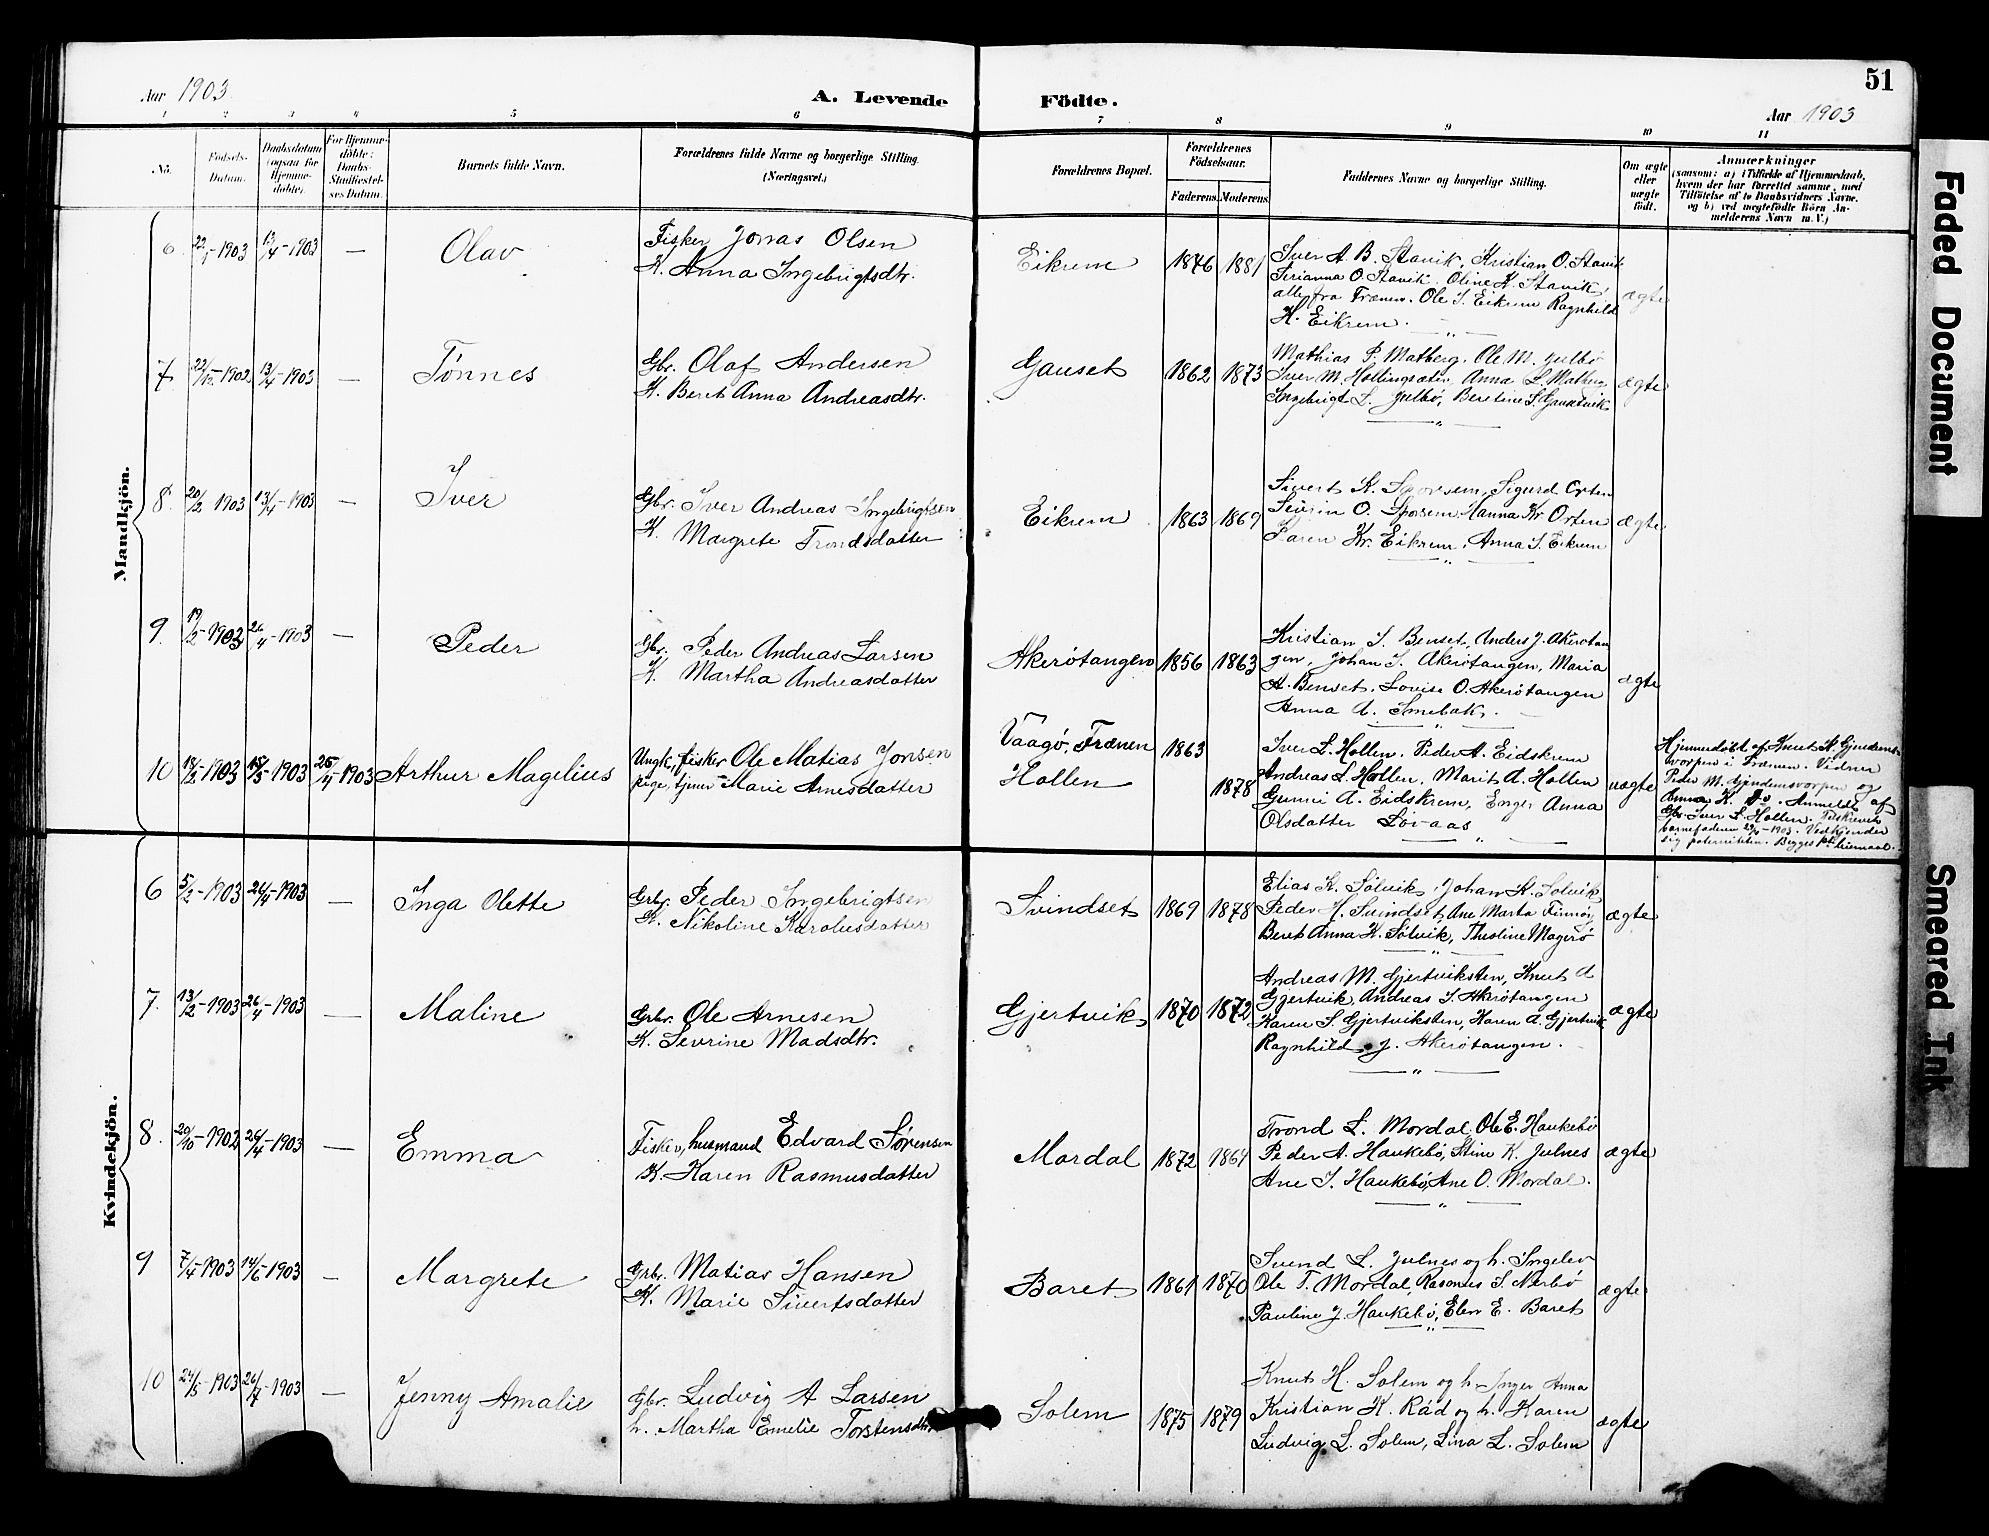 51
Aar 1903
A. Levende
Födte.
Aar 1903
1 2 3 4 5 6 7 8 9 10 11
No.
Födsels-
Datum.
Daabsdatum
(ogsaa for
Hjemme-
döbte).
For Hjemme-
döbte:
Daabs-
Stadfæstel-
ses Datum.
Barnets fulde Navn.
Forældrenes fulde Navne og borgerlige Stilling.
(Næringsvei.)
Forældrenes Bopæl.
Forældrenes
Födselsaar.
Faderens.
Moderens.
Faddernes Navne og borgerlige Stilling.
Om ægte
eller
uægte
födt.
Anmærkninger
(saasom: a) i Tilfælde af Hjemmedaab,
hvem der har forrettet samme, med
Tilföielse af to Daabsvidners Navne.
og b) ved uægtefödte Börn An-
melderens Navn m. V.)
Mandkjön.
6 22/1-1903 13/4-1903 — Olav
Fisker Jonas Olsen
K. Anna Ingebrigtsdtr.
Eikrem 1876 1881
Iver A. B. Stavik, Kristian O. Stavik
Serianna O. Stavik. Oline K. Stavik,
alle fra Frænen. Ole I. Eikrem Ragnhild
K. Eikrem.
ægte
7 22/12-1902 13/4-1903 — Tønnes
Gbr. Olaf Andersen
K. Beret Anna Andreasdtr.
Gauset 1862 1873
Mathias P. Matberg. Ole M. Julbö
Iver M. Hollingsæter, Anna L. Matberg
Ingebrigt L. Julbö, Beretine S. Gaustvik
ægte
8. 20/2 1903 13/4-1903 — Iver
Gbr. Iver Andreas Ingebrigtsen
K. Margrete Trondsdatter
Eikrem 1863 1869
Sivert K. Sporsem, Sigurd Orten
Severin O. Sporsem, Hanna Kr Orten
Karen Kr. Eikrem, Anna I. Eikrem
ægte
9. 19/2-1903 26/4-1903 — Peder
Gbr. Peder Andreas Larsen
K. Martha Andreasdatter
Akerötangen 1856 1863
Kristian I. Benset, Anders J. Akerötan
gen, Johan I. Akerötangen, Maria
A. Benset. Lovise O. Akerötangen
Anna A. Smebak.
ægte
10 18/2-1903 15/3-1903 25/4-1903 Arthur Magelius
Ungk, fisker Ole Matias Jonsen
pige, tjener Marie Arnesdatter
Vaagö, Frænen
Hollen
1863
1878
Iver L. Hollen, Peder A. Eidskrem
Andreas L. Hollen, Marit A. Hollen
Gunni A. Eidskrem, Enger Anna
Olsdatter Lövaas
uægte
Hjemmedöbt af Knut K. Gjendems-
vorpen i Frænen. Vidner
Peder M. Gjendemsvorpen og
Anna K. Do. Anmeldt af
Gbr. Iver L. Hollen.
barnefaderen 29/4-1903. Vedkjender
sig paterniteten. Begges 1ste leiermaal.
Kvindekjön.
6 5/2-1903 26/4-1903 — Inga Olette
Grbr. Peder Ingebrigtsen
K. Nikoline Karolusdatter
Svindset 1869 1878
Elias K. Sölvik, Johan K. Solvik
Peder H. Svindset, Ane Marta Finnöy
Beret Anna K. Sölvik, Theoline Magerö
ægte
7. 13/2-1903 26/4-1903 — Maline
Grbr. Ole Arnesen
K. Sevrine Madsdtr.
Gjertvik 1870 1872
Andreas M. Gjertviksten, Knut A
Gjertvik, Andreas I. Akerötangen
Karen S. Gjertviksten, Karen A. Gjertvik
Ragnhild J. Akerötangen.
ægte
8. 20/10-1902 26/4-1903 — Emma
Fisker, husmand Edvard Sørensen
K. Karen Rasmusdatter
Mordal 1872 1864
Trond L. Mordal, Ole E. Haukebö
Peder A. Haukebö, Stine K. Julnes
Ane I. Haukebö, Ane O. Mordal.
ægte
9 7/4-1903 14/6-1903 — Margrete
Grbr. Matias Hansen
K. Marie Sivertsdatter
Baret 1861 1870
Svend L. Julnes og h. Ingelev
Ole T. Mordal, Rasmus S. Nerbö
Pauline J. Haukebö, Elen E. Baret
ægte
10 24/5-1903 26/7-1903 — Jenny Amalie
Gbr. Ludvig A Larsen
h. Martha Emelie Torstensdtr
Solem 1875 1879
Knut H. Solem og h. Inger Anna
Kristian K. Råd og h. Karen
Ludvig L. Solem, Lina L. Solem
ægte
Faded Document
Smeared Ink